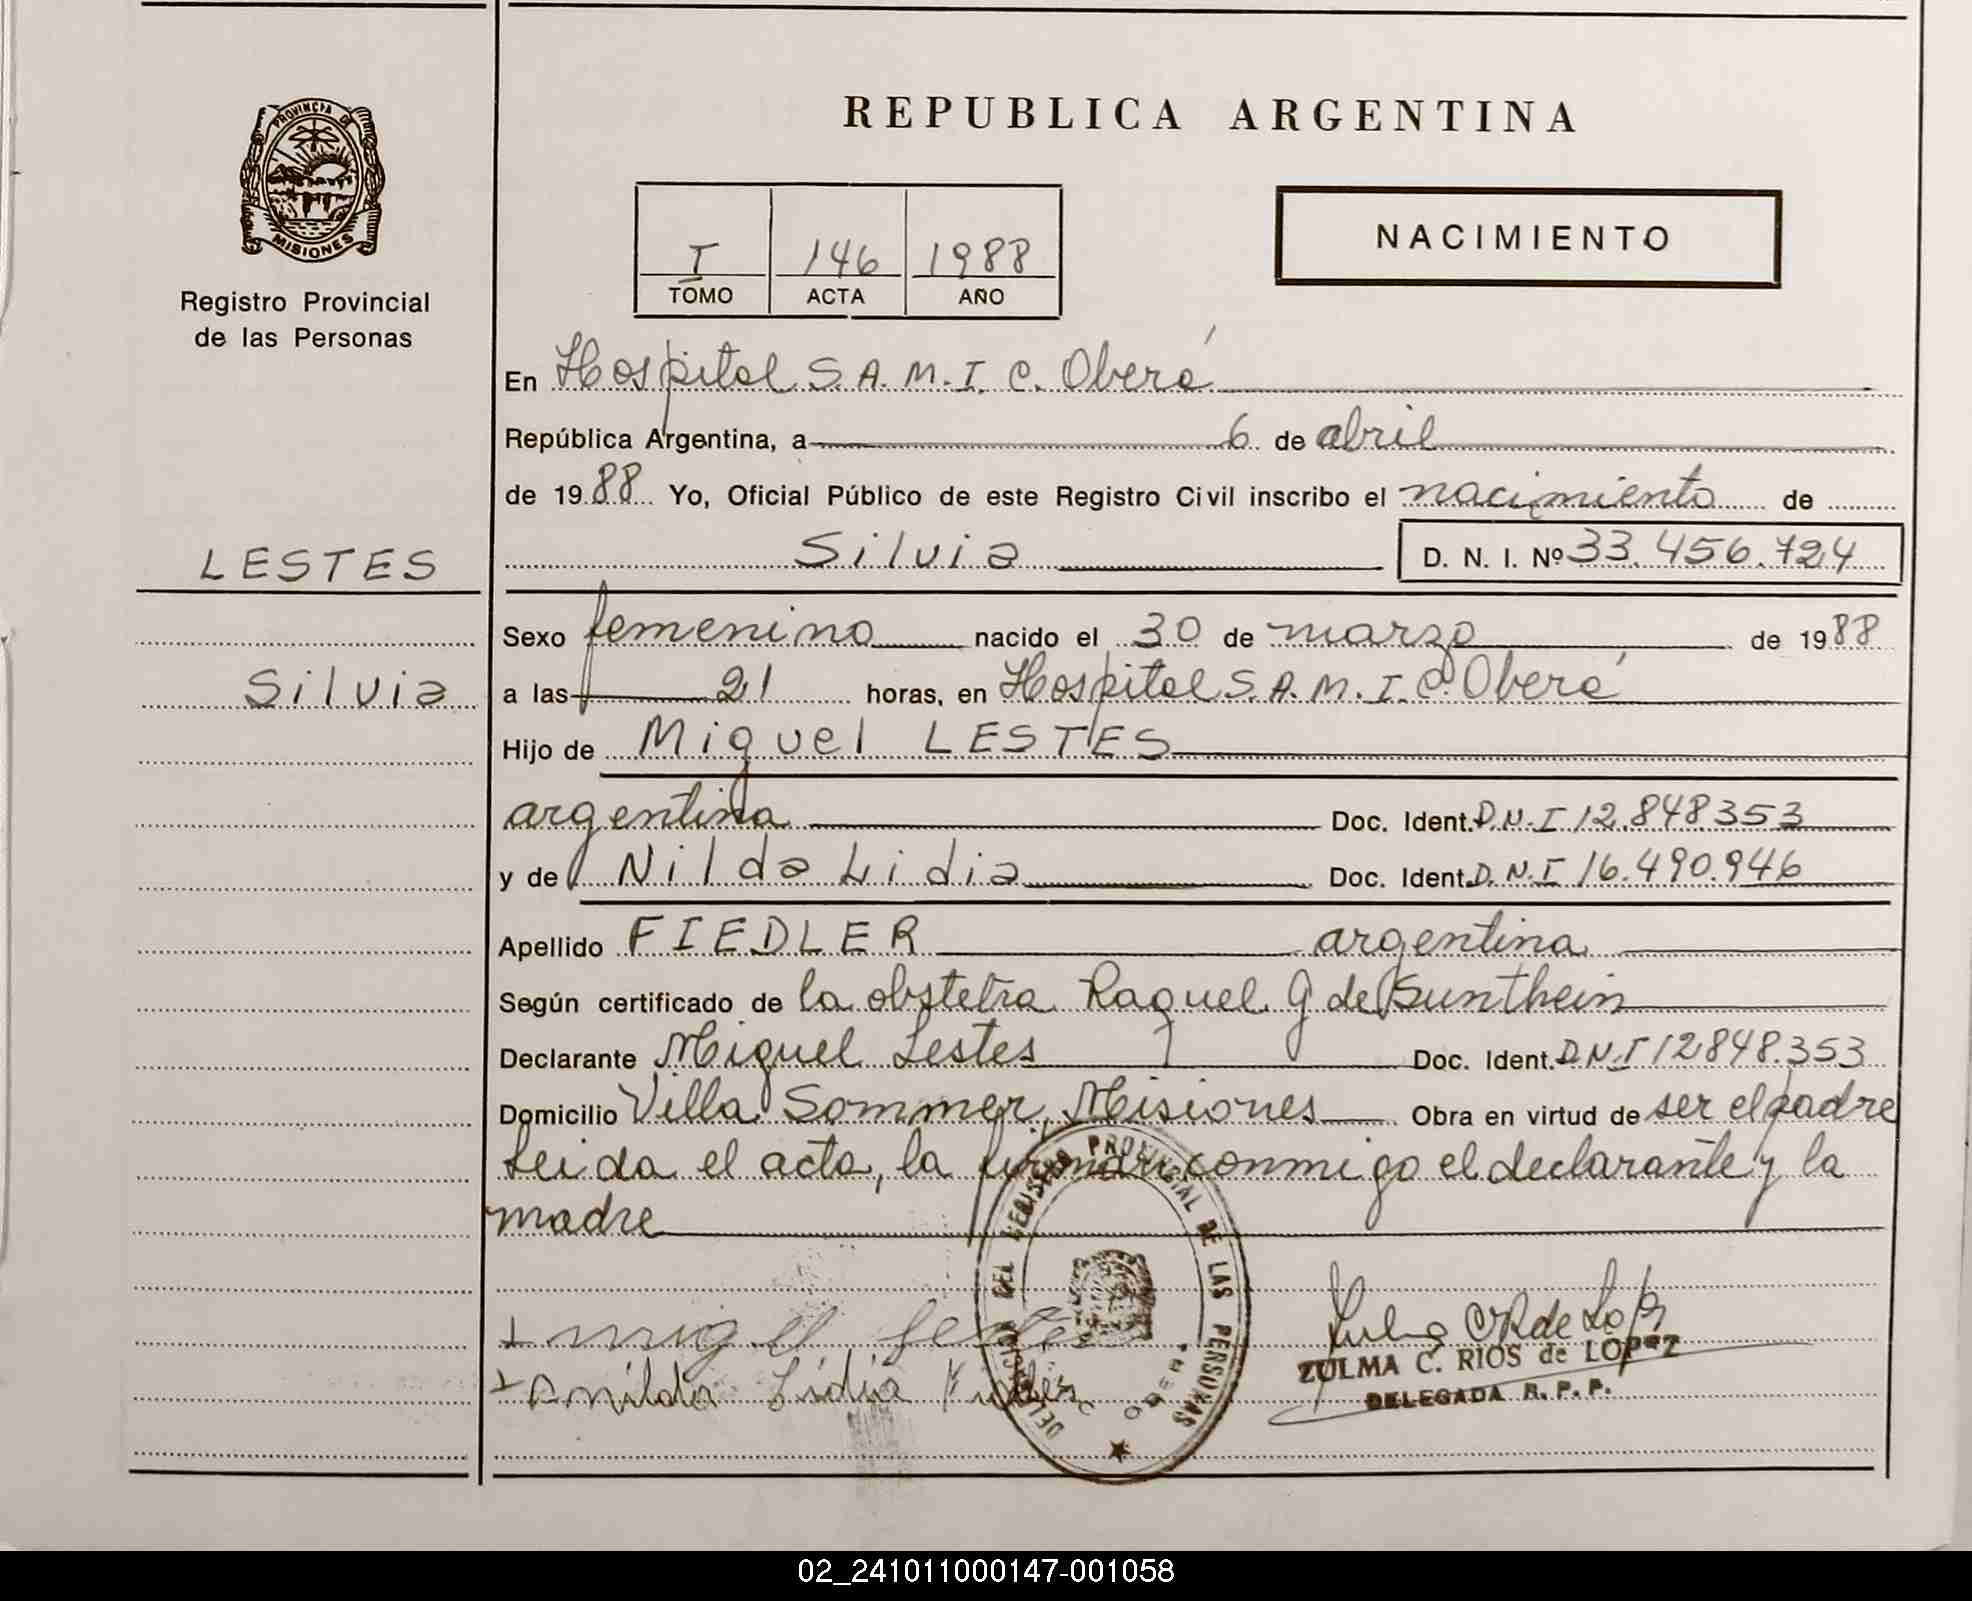 REPUBLICA ARGENTINA
PROVINCIA DE
MISIONES
Registro Provincial
de las Personas
I 146 1988
TOMO ACTA AÑO
NACIMIENTO
En Hospital S.A.M.I.C. Oberá
República Argentina, a 6 de abril
de 1988 Yo, Oficial Público de este Registro Civil inscribo el nacimiento de
LESTES
Silvia D. N. I. Nº 33.456.724
Sexo femenino nacido el 30 de marzo de 1988
Silvia
a las 21 horas, en Hospital S.A.M.I.C. Oberá
Hijo de Miguel LESTES
argentina Doc. Ident. D.N.I 12.848.353
y de Nilda Lidia Doc. Ident. D.N.I 16.490.946
Apellido FIEDLER argentina
Según certificado de la obstetra Raquel G de Sunthein
Declarante Miguel Lestes Doc. Ident. D.N.I 12848.353
Domicilio Villa Sommer, Misiones Obra en virtud de ser el padre
Leida el acta, la firman conmigo el declarante y la
madre
DEL REGISTRO PROVINCIAL DE LAS PERSONAS
miguel Lestes
Lidia
ZULMA C. RIOS de LOPEZ
DELEGADA R. P. P.
02_241011000147-001058